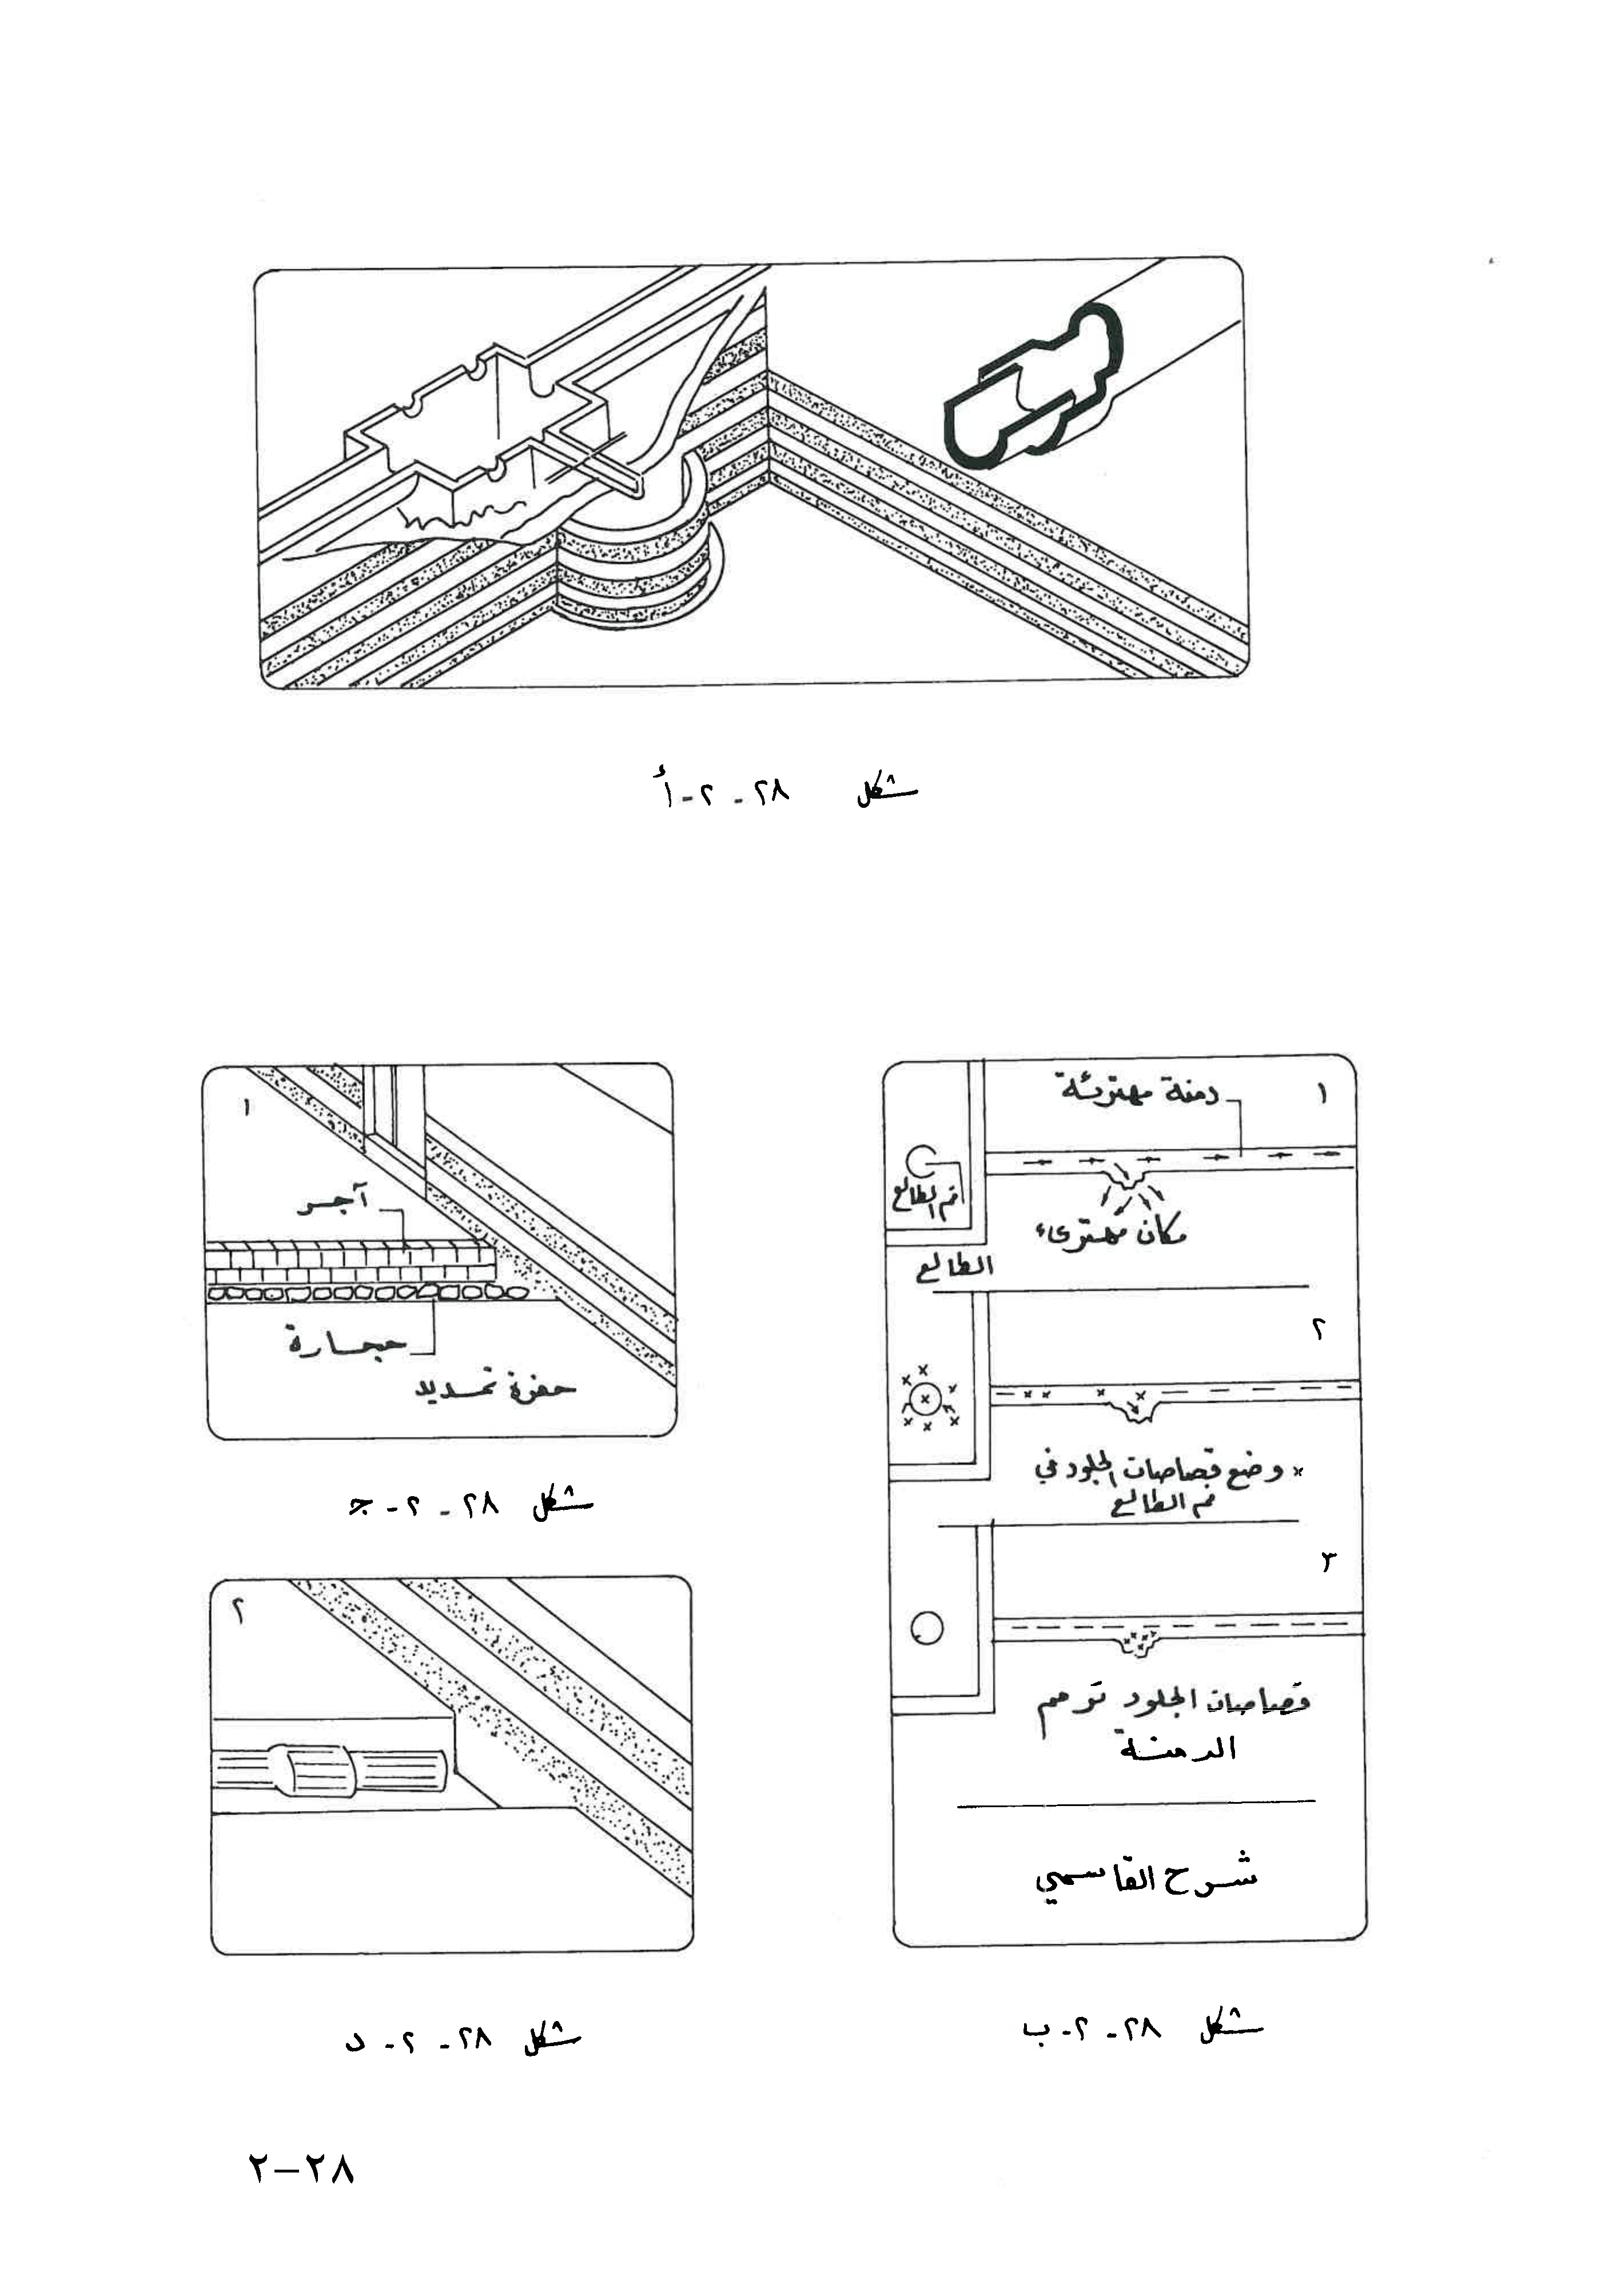 شكل ٢٨ - ٢ - أ
١
دمنة مهترئة
فم الطالع
مكان مهترىء
الطالع
٢
× وضع قصاصات الجلود في
فم الطالع
٣
قصاصات الجلود ترمم
الدمنة
شرح القاسمي
شكل ٢٨ - ٢ - ب
١
آجر
حجارة
حفرة تمديد
شكل ٢٨ - ٢ - ج
٢
شكل ٢٨ - ٢ - د
٢٨-٢